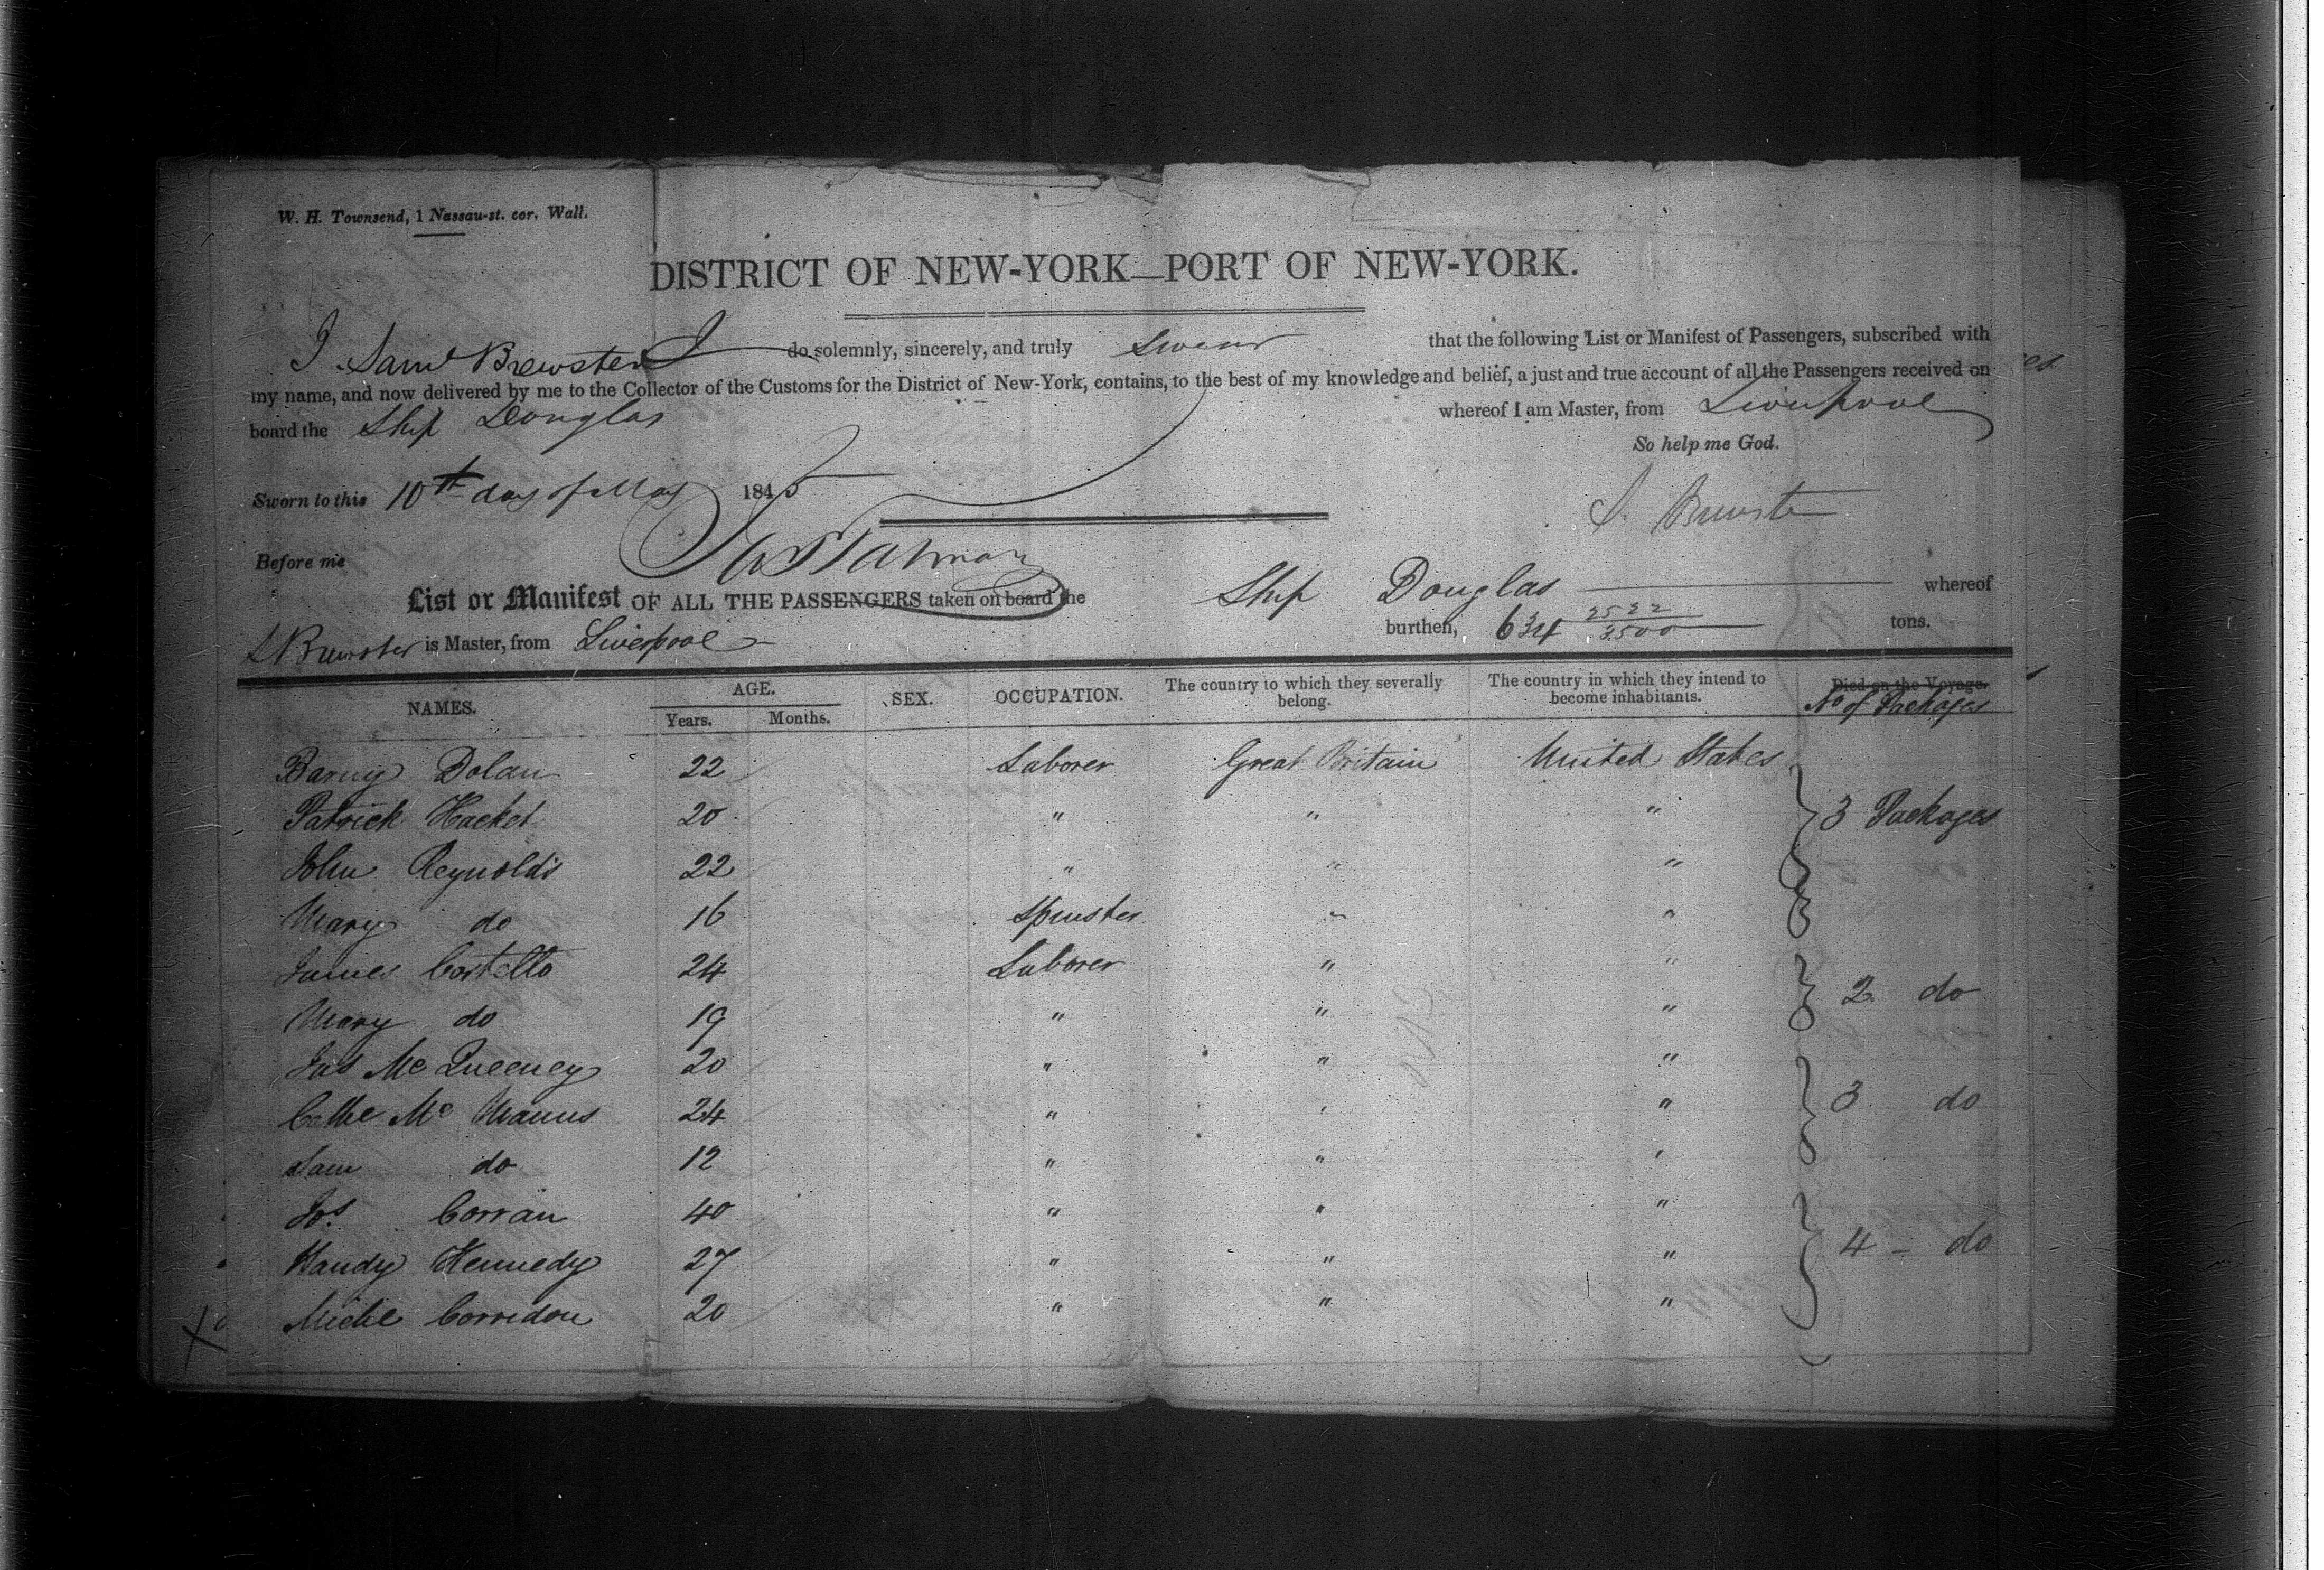 W. H. Townsend, 1 Nassau-st. cor. Wall.
DISTRICT OF NEW-YORK—PORT OF NEW-YORK.
I Saml Brewster do solemnly, sincerely, and truly swear that the following List or Manifest of Passengers, subscribed with
my name, and now delivered by me to the Collector of the Customs for the District of New-York, contains, to the best of my knowledge and belief, a just and true account of all the Passengers received on
board the Ship Douglas whereof I am Master, from Liverpool
So help me God.
Sworn to this 10th day of May 1845
S. Brewster
Before me
List or Manifest OF ALL THE PASSENGERS taken on board the Ship Douglas whereof
S Brewster is Master, from Liverpool burthen, 634 25 22 / 3500 tons.
NAMES. AGE. Years. Months. SEX. OCCUPATION. The country to which they severally belong. The country in which they intend to become inhabitants. Died on the Voyage. No of Packages
Barny Dolan 22 Laborer Great Britain United States
Patrick Hacket 20 " " " 3 Packages
John Reynolds 22 " " "
Mary do 16 Spinster " "
James Costello 24 Laborer " "
Mary do 19 " " " 2 do
Jas Mc Queeney 20 " " "
Cathe Mc Manus 24 " " " 3 do
Sam do 12 " " "
Jos Corran 40 " " "
Handy Kennedy 27 " " " 4 - do
Michl Corridon 20 " " "